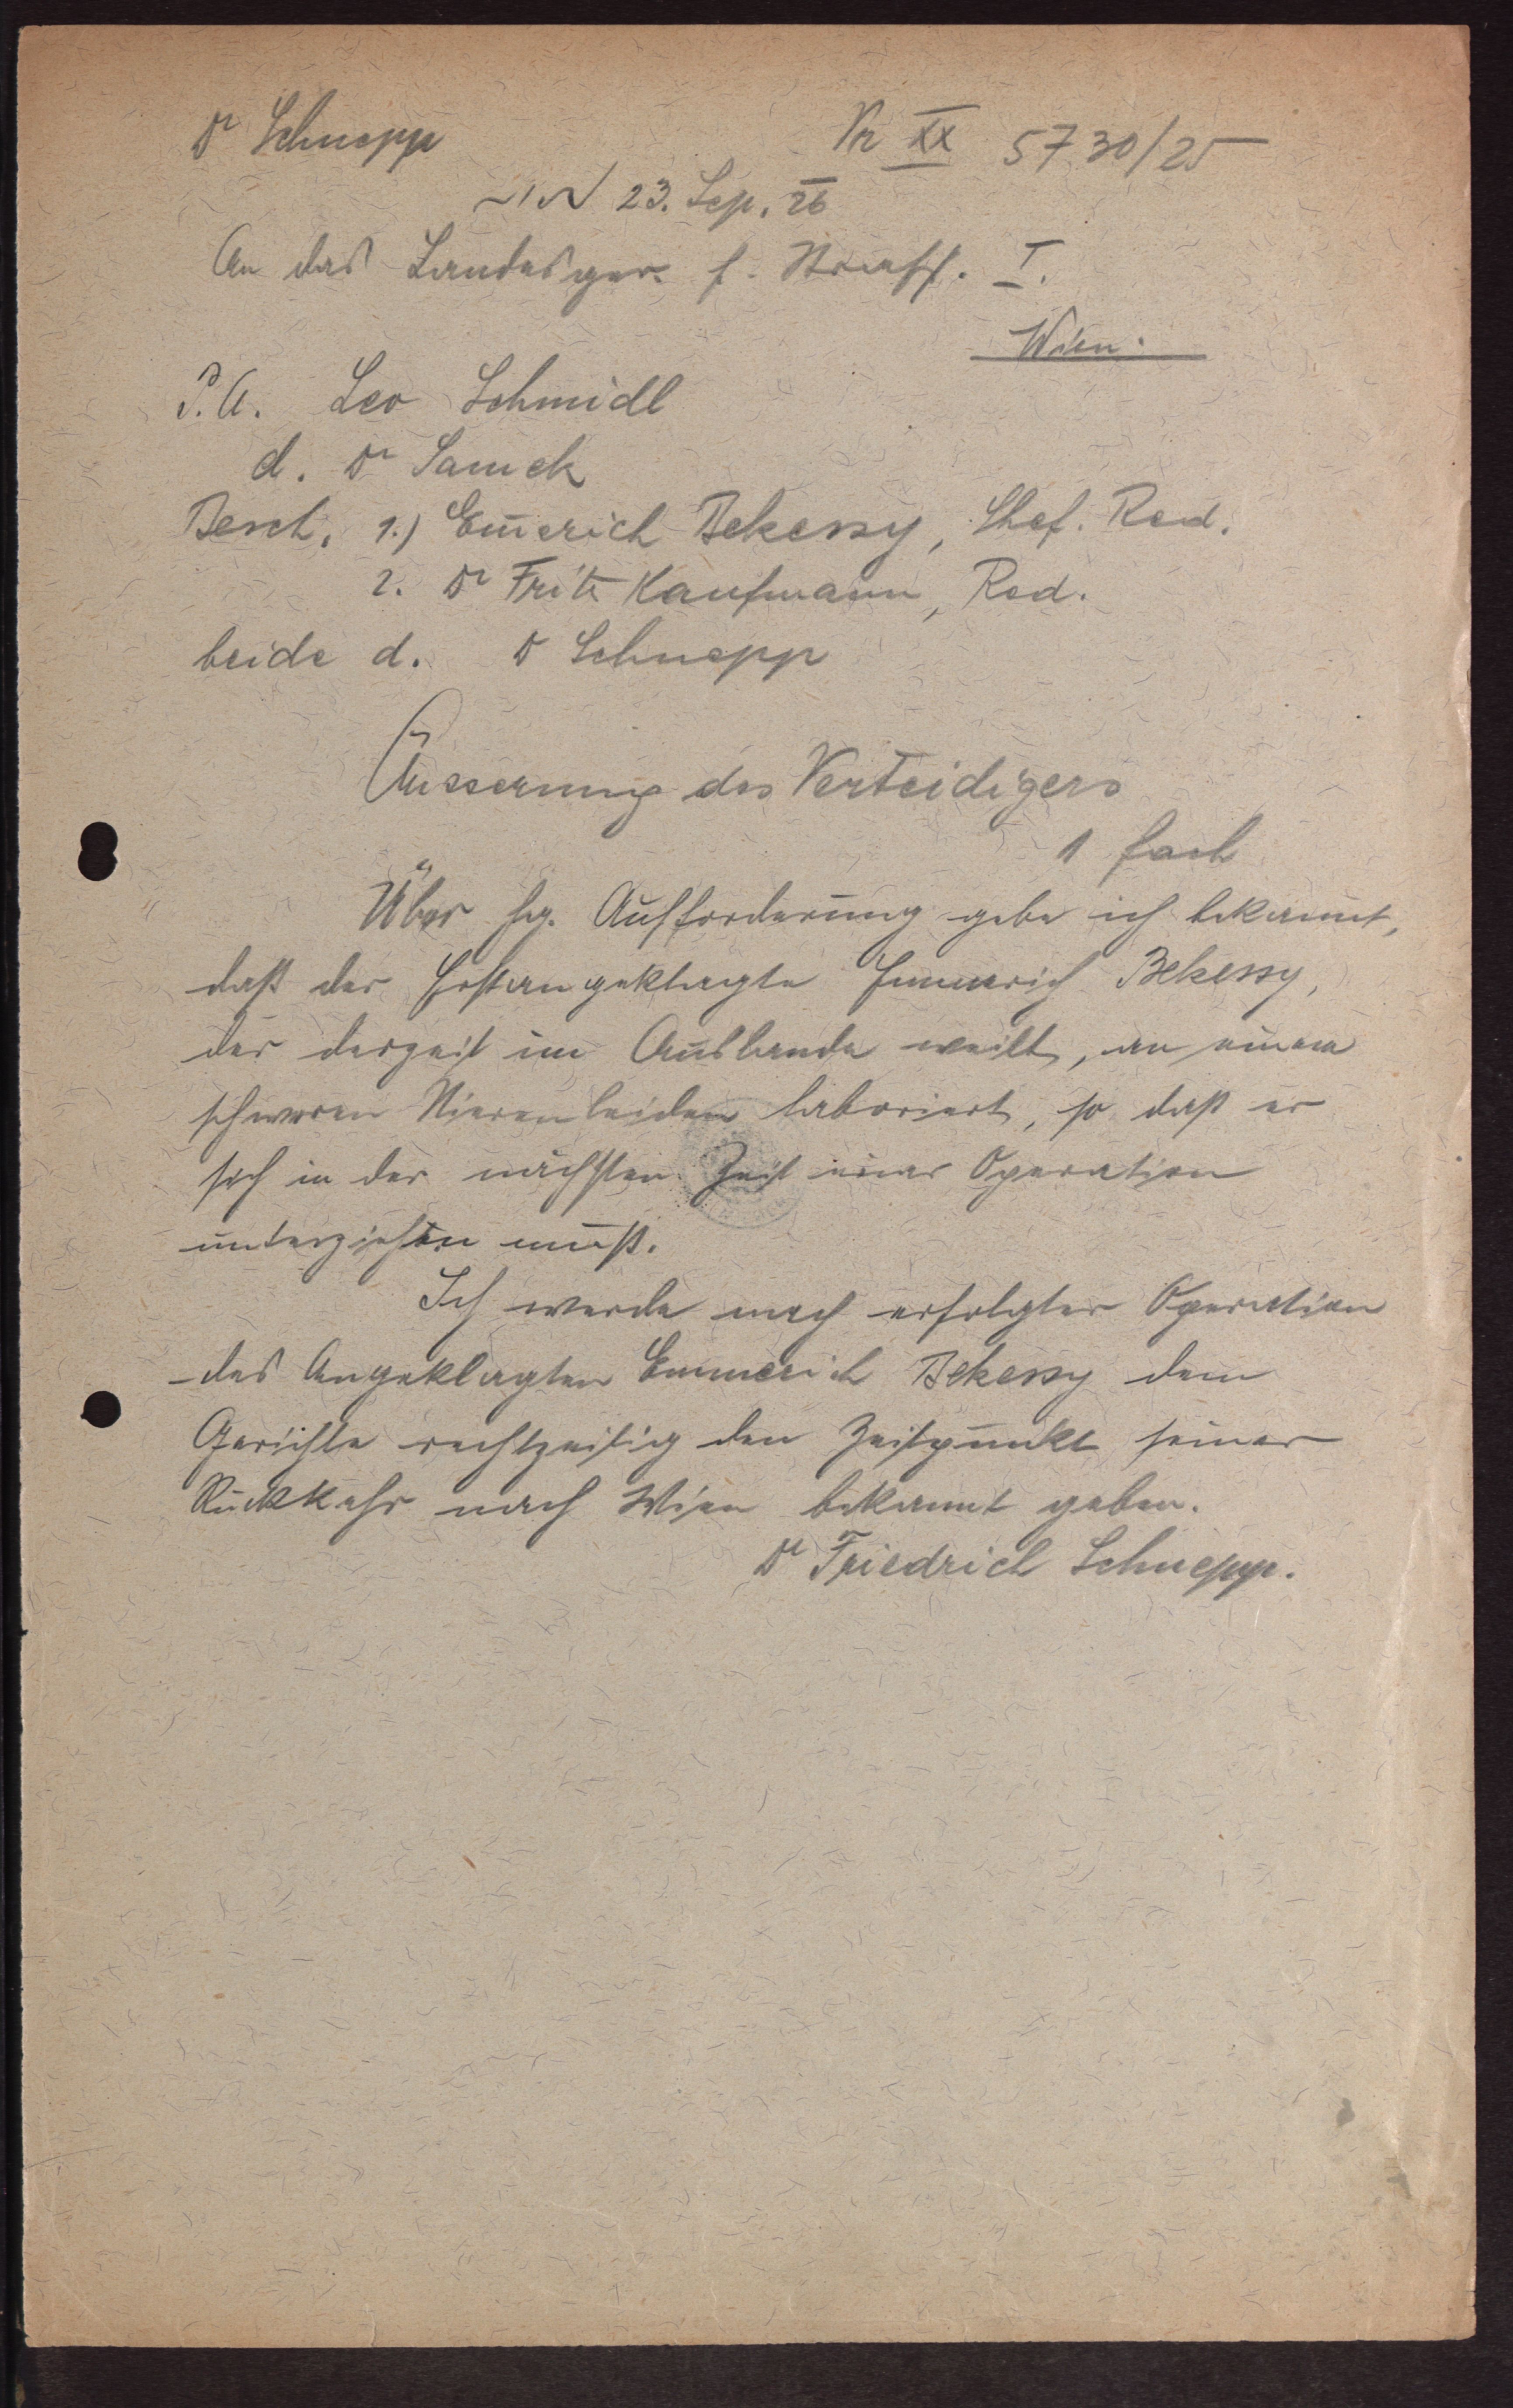 Dr Schnepp
Vr XX 5730/25
23. Sep. 26
An das Landesger. f. Strafs. I.
Wien.
P.A. Leo Schmidl
d. Dr Samek
Besch. 1.) Em̄erich Bekessy, Chef. Red.
2. Dr Fritz Kaufmann, Red.
beide d. Dr Schnepp
Äusserung des Verteidigers
1 fach
Über hg. Aufforderung gebe ich bekannt,
daß der Erstangeklagte Emmerich Bekessy,
der derzeit im Auslande weilt, an einem
schweren Nierenleiden laboriert, so daß er
sich in der nächsten Zeit einer Operation
unterziehen muß.
Ich werde nach erfolgter Operation
des Angeklagten Emmerich Bekessy dem
Gerichte rechtzeitig den Zeitpunkt seiner
Rückkehr nach Wien bekannt geben.
Dr Friedrich Schnepp.